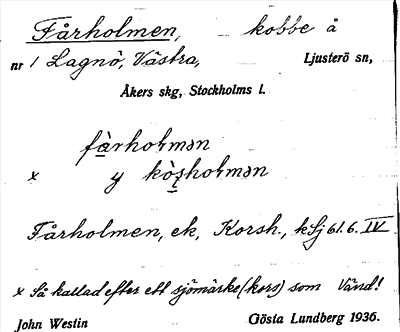 Fårholmen, kobbe å
nr 1 Lagnö, Västra, Ljusterö sn,
Åkers skg, Stockholms l.
fàrholmən
× y kòṣholmən
Fårholmen, ek, Korsh., kSj 61.6. IV
× Så kallad efter ett sjömärke (kors) som Vänd!
John Westin Gösta Lundberg 1936.